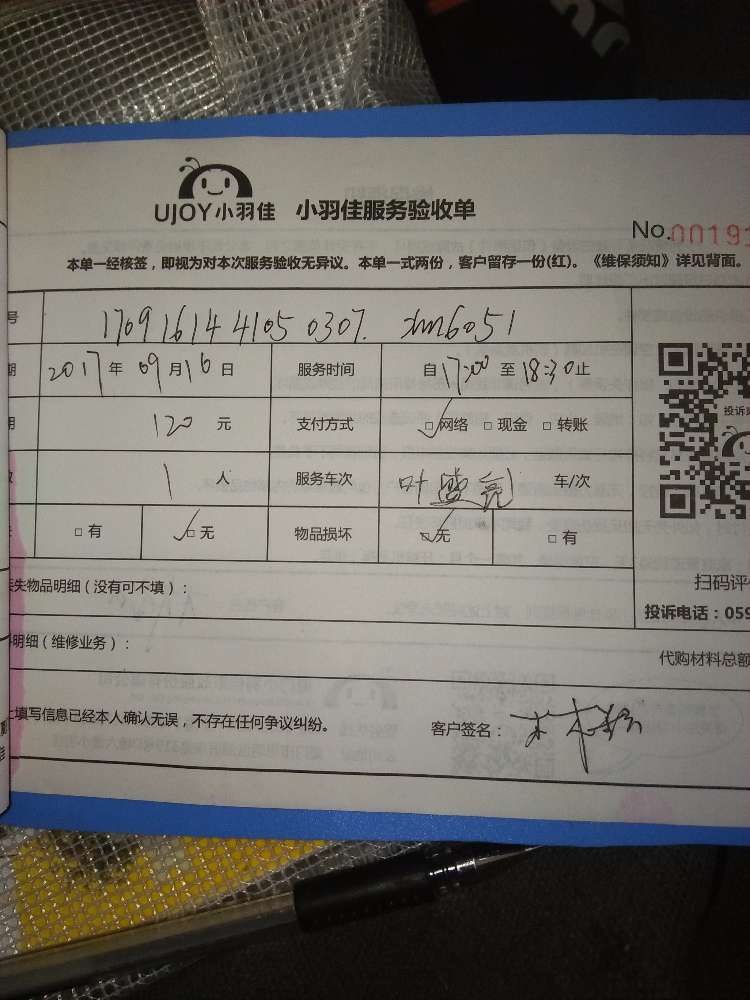 UJOY小羽佳 小羽佳服务验收单
No.00191
本单一经核签，即视为对本次服务验收无异议。本单一式两份，客户留存一份(红)。《维保须知》详见背面。
号 1709161441050307. xm6051
期 2017年09月16日 服务时间 自17:00至18:30止
用 120元 支付方式 ☑网络 □现金 □转账
数 1人 服务车次 叶盛亮 车/次
□有 ☑无 物品损坏 ☑无 □有
投诉
丢失物品明细（没有可不填）：
扫码评价
投诉电话：059
料明细（维修业务）：
代购材料总额
上填写信息已经本人确认无误，不存在任何争议纠纷。 客户签名：